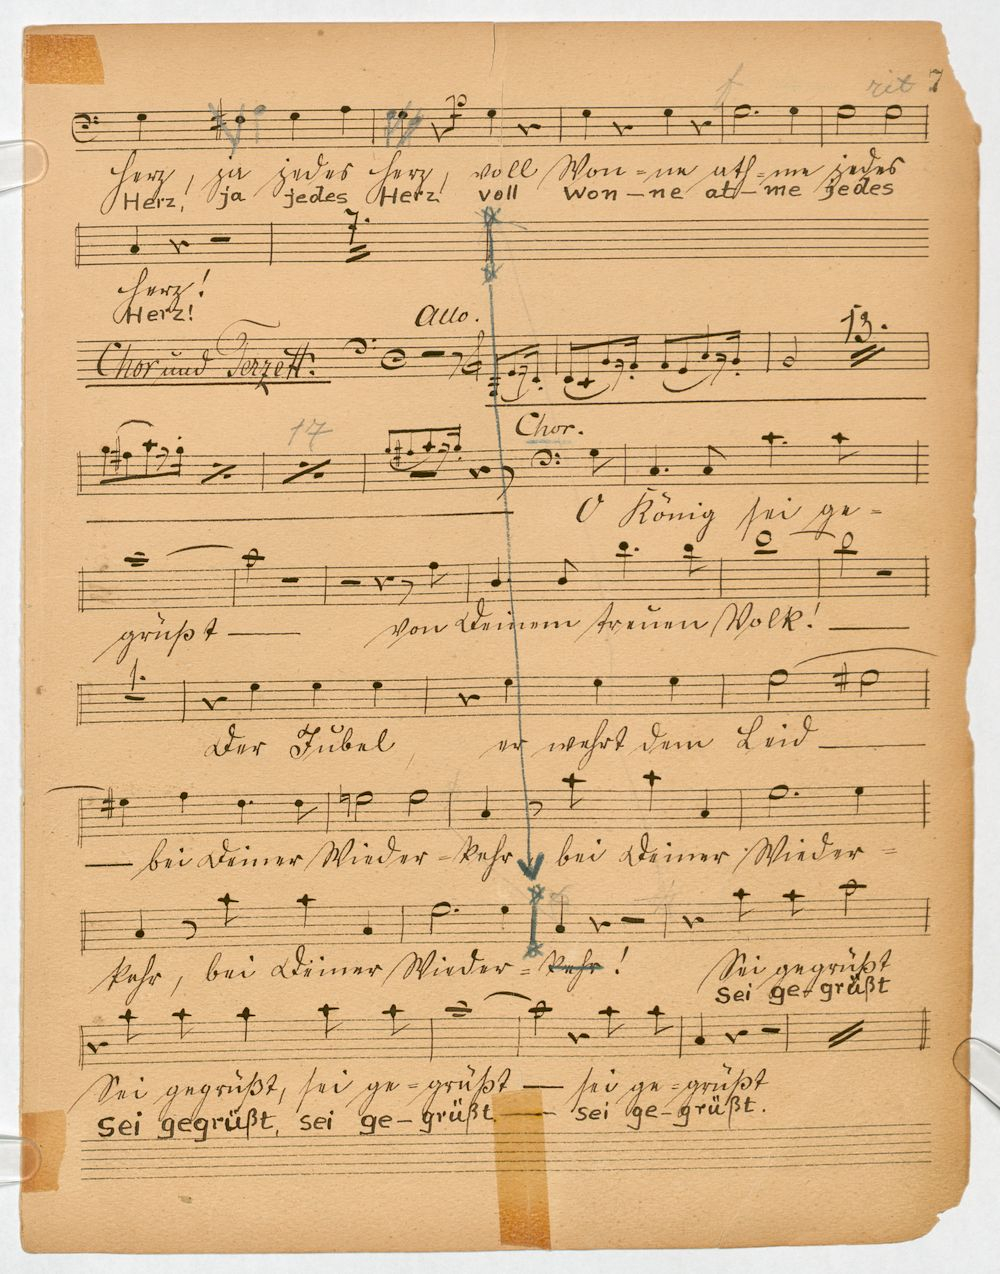 rit 7
herz, ja jedes herz, voll Won=ne ath=me jedes
Herz! ja jedes Herz! voll Won–ne at–me jedes
7.
herz!
Herz!
Allo.
Chor und Terzett: 13.
17 Chor.
O König sei ge=
grüßt — von Deinem treuen Volk! —
1.
Der Jubel, er wehrt dem Leid —
— bei Deiner Wieder=kehr, bei Deiner Wieder=
kehr, bei Deiner Wieder=kehr! Sei gegrüßt
Sei ge-grüßt
Sei gegrüßt, sei ge=grüßt — sei ge=grüßt
Sei gegrüßt, sei ge–grüßt — sei ge–grüßt.